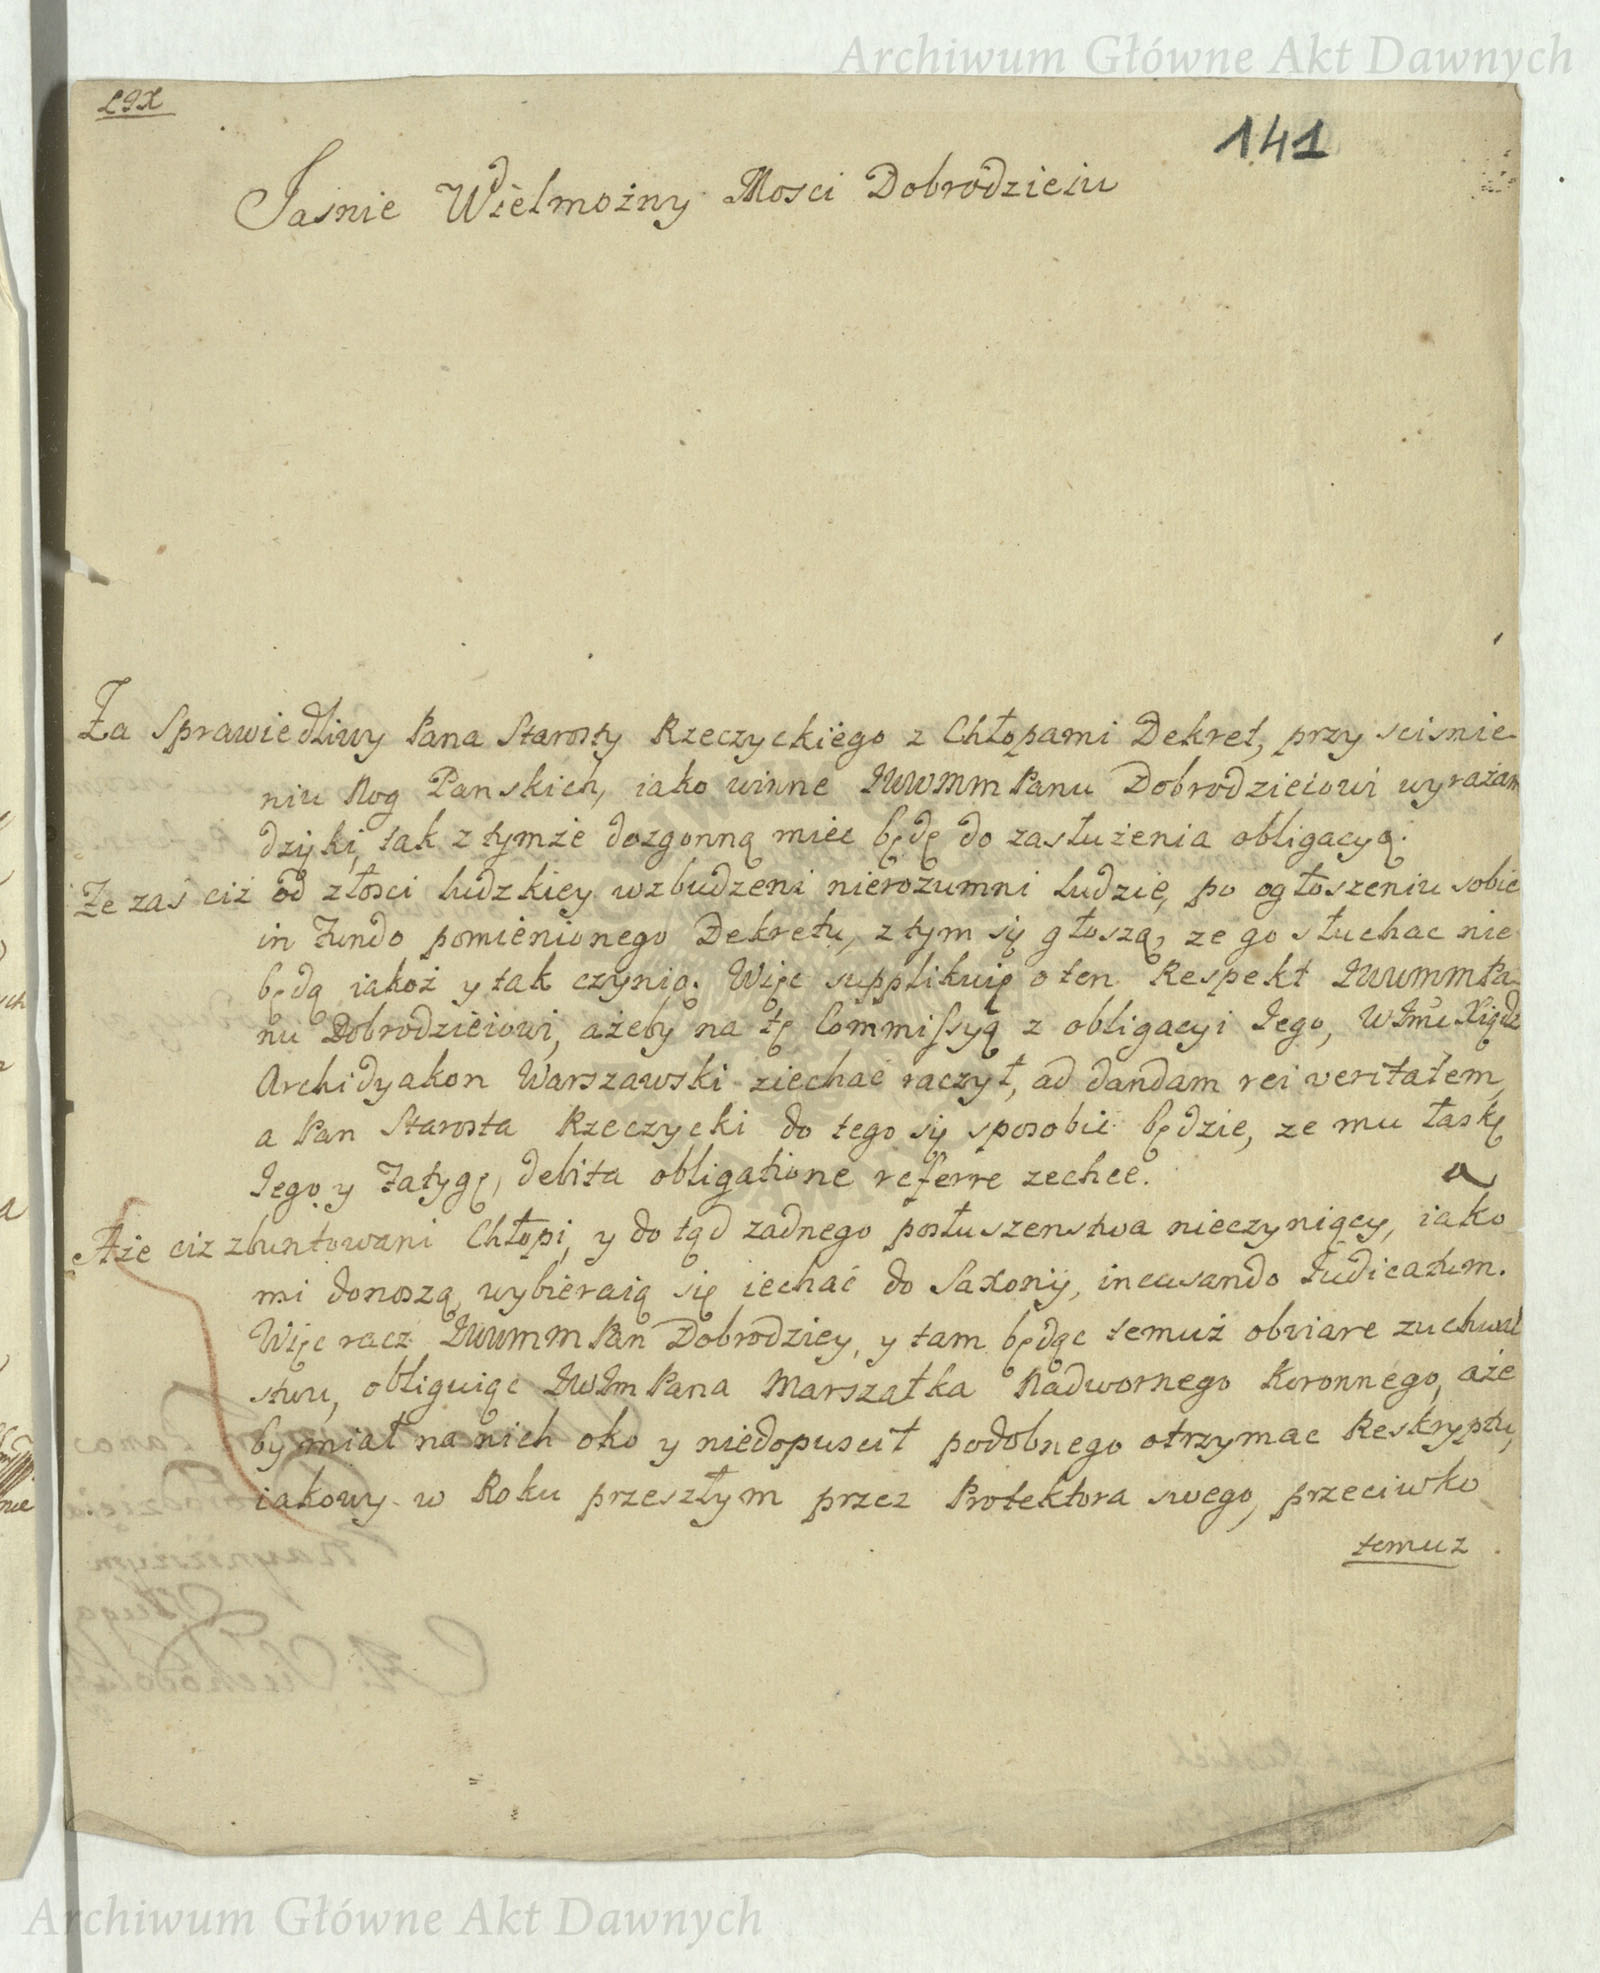 Archiwum Główne Akt Dawnych
141
Jasnie Wielmożny Mosci Dobrodzieiu
Za Sprawiedliwy Pana Starosty Rzeczyckiego z Chłopami Dekret, przy scisnie-
niu Nog Panskich, iako winne JWWMM Panu Dobrodzieiowi wyrażam
dzięki, tak z tymże dozgonną miec będę do zasłużenia obligacyą.
Że zaś ciż od złosci ludzkiey wzbudzeni nierozumni ludzie, po ogłoszeniu sobie
in Fundo pomienionego Dekretu, z tym się głoszą, ze go słuchac nie
będą iakoż y tak czynią. Więc supplikuię o ten Respekt JWWMM Pa-
nu Dobrodzieiowi, ażeby na tę Commissyą z obligacyi Jego, WJmć Xiądz
Archidyakon Warszawski ziechać raczył, ad dandam rei veritatem,
a Pan Starosta Rzeczycki do tego się sposobić będzie, ze mu łaskę
Jego y Fatygę, debita obligatione referre zechce.
a
Aże ciż zbuntowani Chłopi, y do tąd zadnego posłuszenstwa nieczyniący, iako
mi donoszą, wybieraią się iechać do Saxonij, incusando Judicatum.
Więc racz JWWMM Pan Dobrodziey, y tam będąc temuż obviare zuchwal
stwu, obliguiąc JWJm Pana Marszałka Nadwornego Koronnego, aże
by miał na nich oko y niedopuscił podobnego otrzymac Reskryptu,
iakowy w Roku przeszłym przez Protektora swego, przeciwko
temuz
Archiwum Główne Akt Dawnych